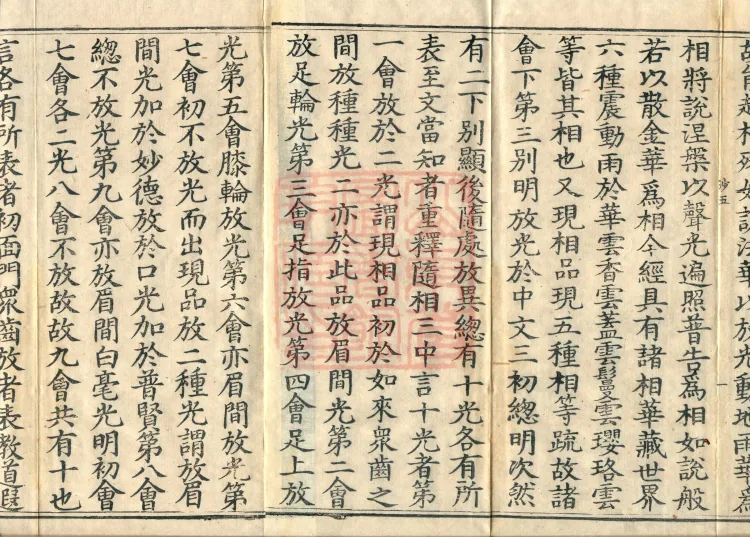 說法華以放光動地雨華為
沙五
一
相將說涅槃以聲光遍照普告為相如說般
若以散金華為相今經具有諸相華藏世界
六種震動雨於華雲香雲蓋雲鬘雲瓔珞雲
等皆其相也又現相品現五種相等疏故諸
會下第三別明放光於中文三初總明次然
有二下別顯後隨處放異總有十光各有所
表至文當知者重釋隨相三中言十光者第
一會放於二光謂現相品初於如來衆齒之
間放種種光二亦於此品放眉間光第二會
放足輪光第三會足指放光第四會足上放
光第五會膝輪放光第六會亦眉間放光第
七會初不放光而出現品放二種光謂放眉
間光加於妙德放於口光加於普賢第八會
總不放光第九會亦放眉間白毫光明初會
七會各二光八會不放故故九會共有十也
言各有所表者初面門衆齒放者表教道遐